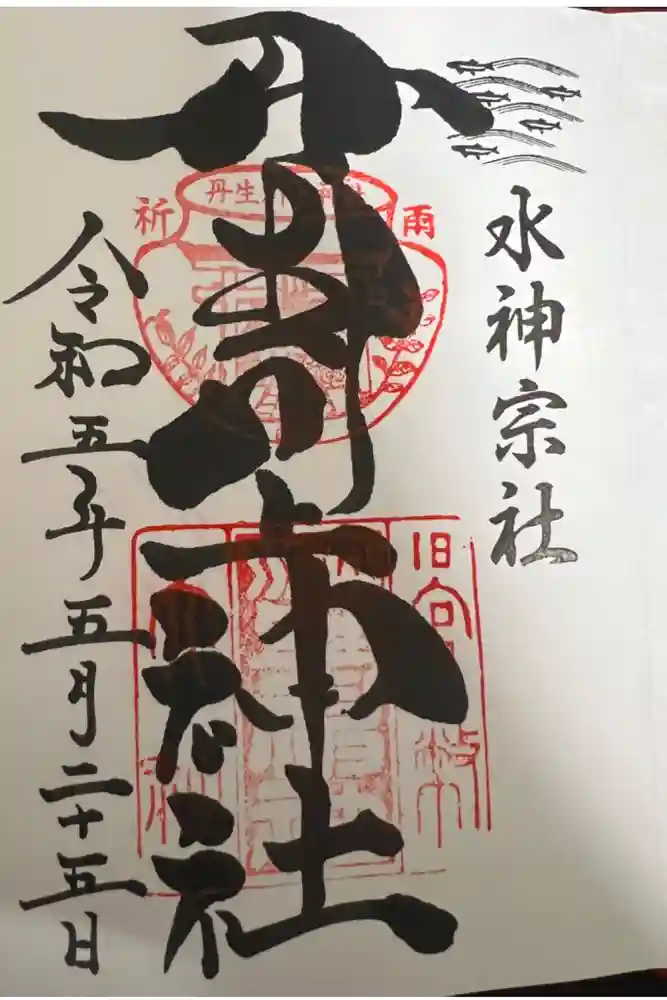 水神宗社
丹生川上神社
令和五年五月二十五日
祈雨
丹生
旧官幣